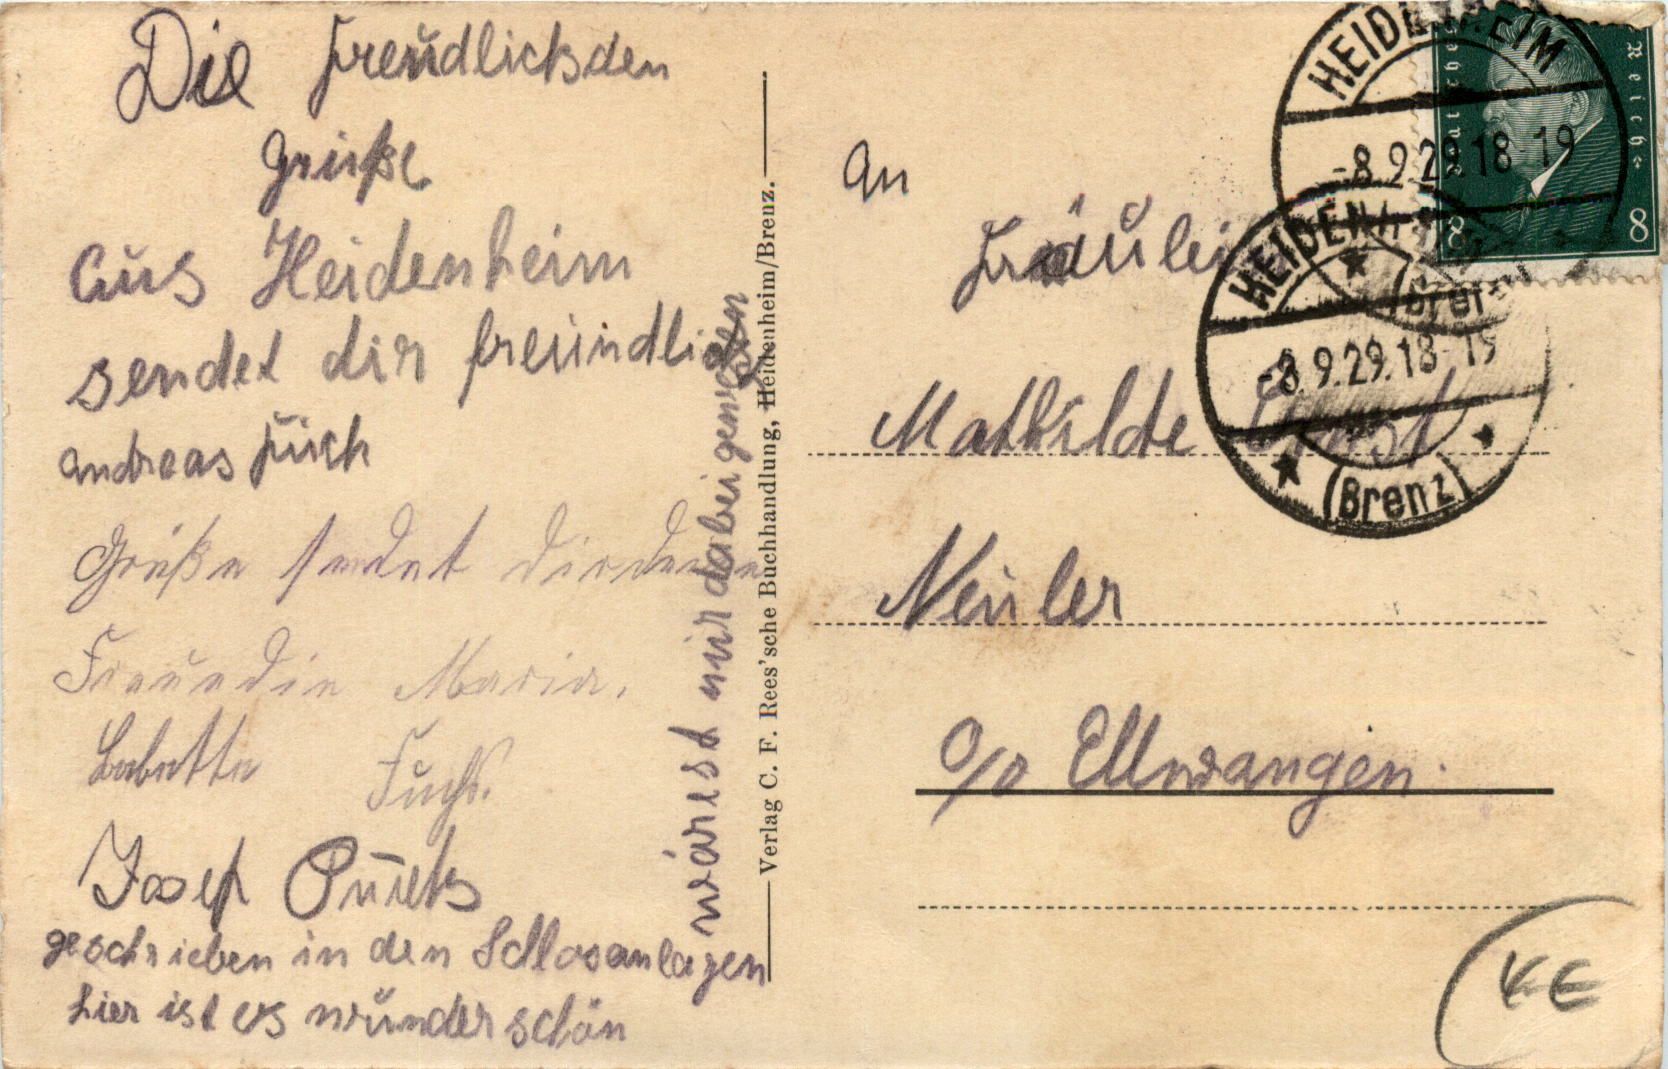 Die freŭdlichsden
Grüße
aŭs Heidenheim
sendet dir freundlich
andreas
Grüße sendet dir deine
Freundin Maria.
Babette Fuchs.
Josef
geschrieben in den Schlosanlagen
hier ist es wŭnderschön
wärest nur dabei gewesen
Verlag C. F. Rees'sche Buchhandlung, Heidenheim/Brenz.
An
Fräulei
Mathilde Ernst
Neuler
O/A Ellwangen.
HEIDENHEIM
-8.9.29.18-19
(Brenz)
HEIDENHEIM
-8.9.29.18-19
(Brenz)
Deutsches Reich
8 8